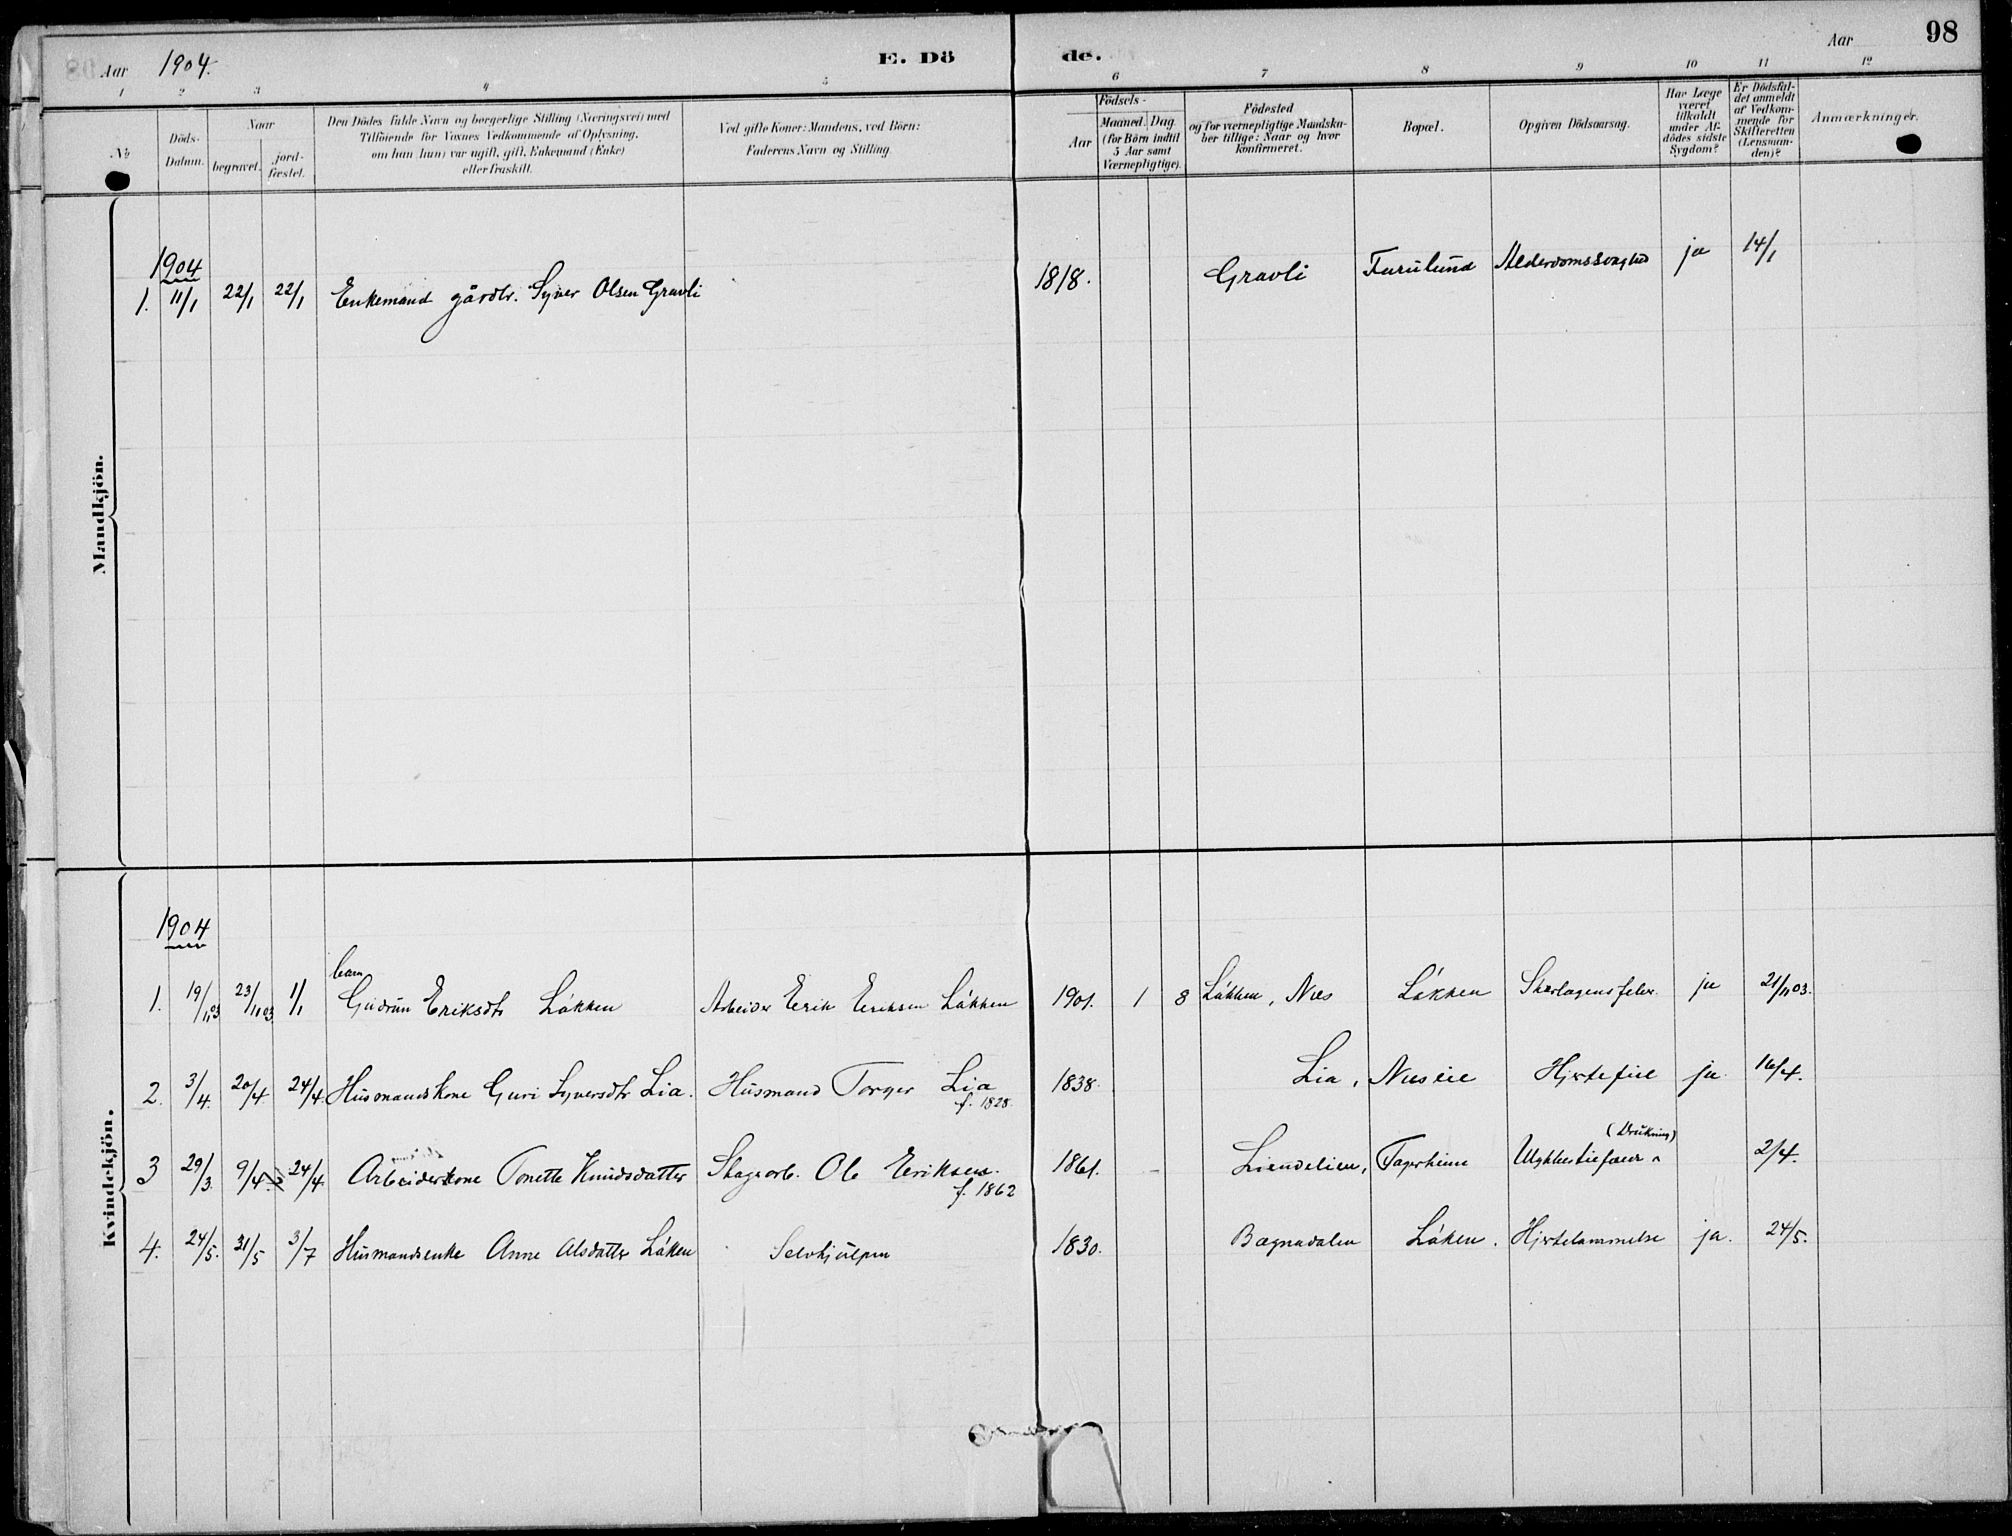 98
Aar 1904. E. Dö de. Aar
1 2 3 4 5 6 7 8 9 10 11 12
No
Döds-Datum.
Naar
begravet.
jord-fæstet.
Den Dödes fulde Navn og borgerlige Stilling (Næringsvei) med
Tilföiende for Voxnes Vedkommende af Oplysning,
om han (hun) var ugift, gift, Enkemand (Enke)
eller fraskilt.
Ved gifte Koner: Mandens, ved Börn:
Faderens Navn og Stilling.
Födsels-
Aar
Maaned. Dag
(for Börn indtil
5 Aar samt
Værnepligtige).
Födested
og for værnepligtige Mandska-
ber tillige: Naar og hvor
konfirmeret.
Bopæl.
Opgiven Dödsaarsag.
Har Læge
været
tilkaldt
under Af-
dödes sidste
Sygdom?
Er Dödsfal-
det anmeldt
af Vedkom-
mende for
Skifteretten
(Lensman-
den)?
Anmærkninger.
Mandkjön.
1904
1. 11/1 22/1 22/1 Enkemand gårdbr. Syver Olsen Gravli 1818. Gravli Furulund Alderdomssvaghed ja 14/1
Kvindekjön.
1904
barn
1. 19/11 03 23/11 03 1/1 Gudrun Eriksdtr Løkken Arbeider Erik Eriksen Løkken 1901. 1 8 Løkken, Nes Løkken Skarlagensfeber. ja 21/11 03.
2. 3/4. 20/4 24/4. Husmandskone Guri Syversdtr Lia. Husmand Torger Lia 1838. Lia, Neseie Hjertefeil ja 16/4.
f. 1828.
(Drukning)
3 29/3. 9/4 24/4. Arbeiderkone Tonette Knudsdatter Slagearb. Ole Eriksen. 1861. Liendelien, Fagerheim Ulykkestilfælde 2/4.
f. 1862
4. 24/5. 31/5 3/7 Husmandsenke Anne Olsdatter Løken Selvhjulpen 1830. Bagnadalen Løken. Hjertelammelse ja. 24/5.